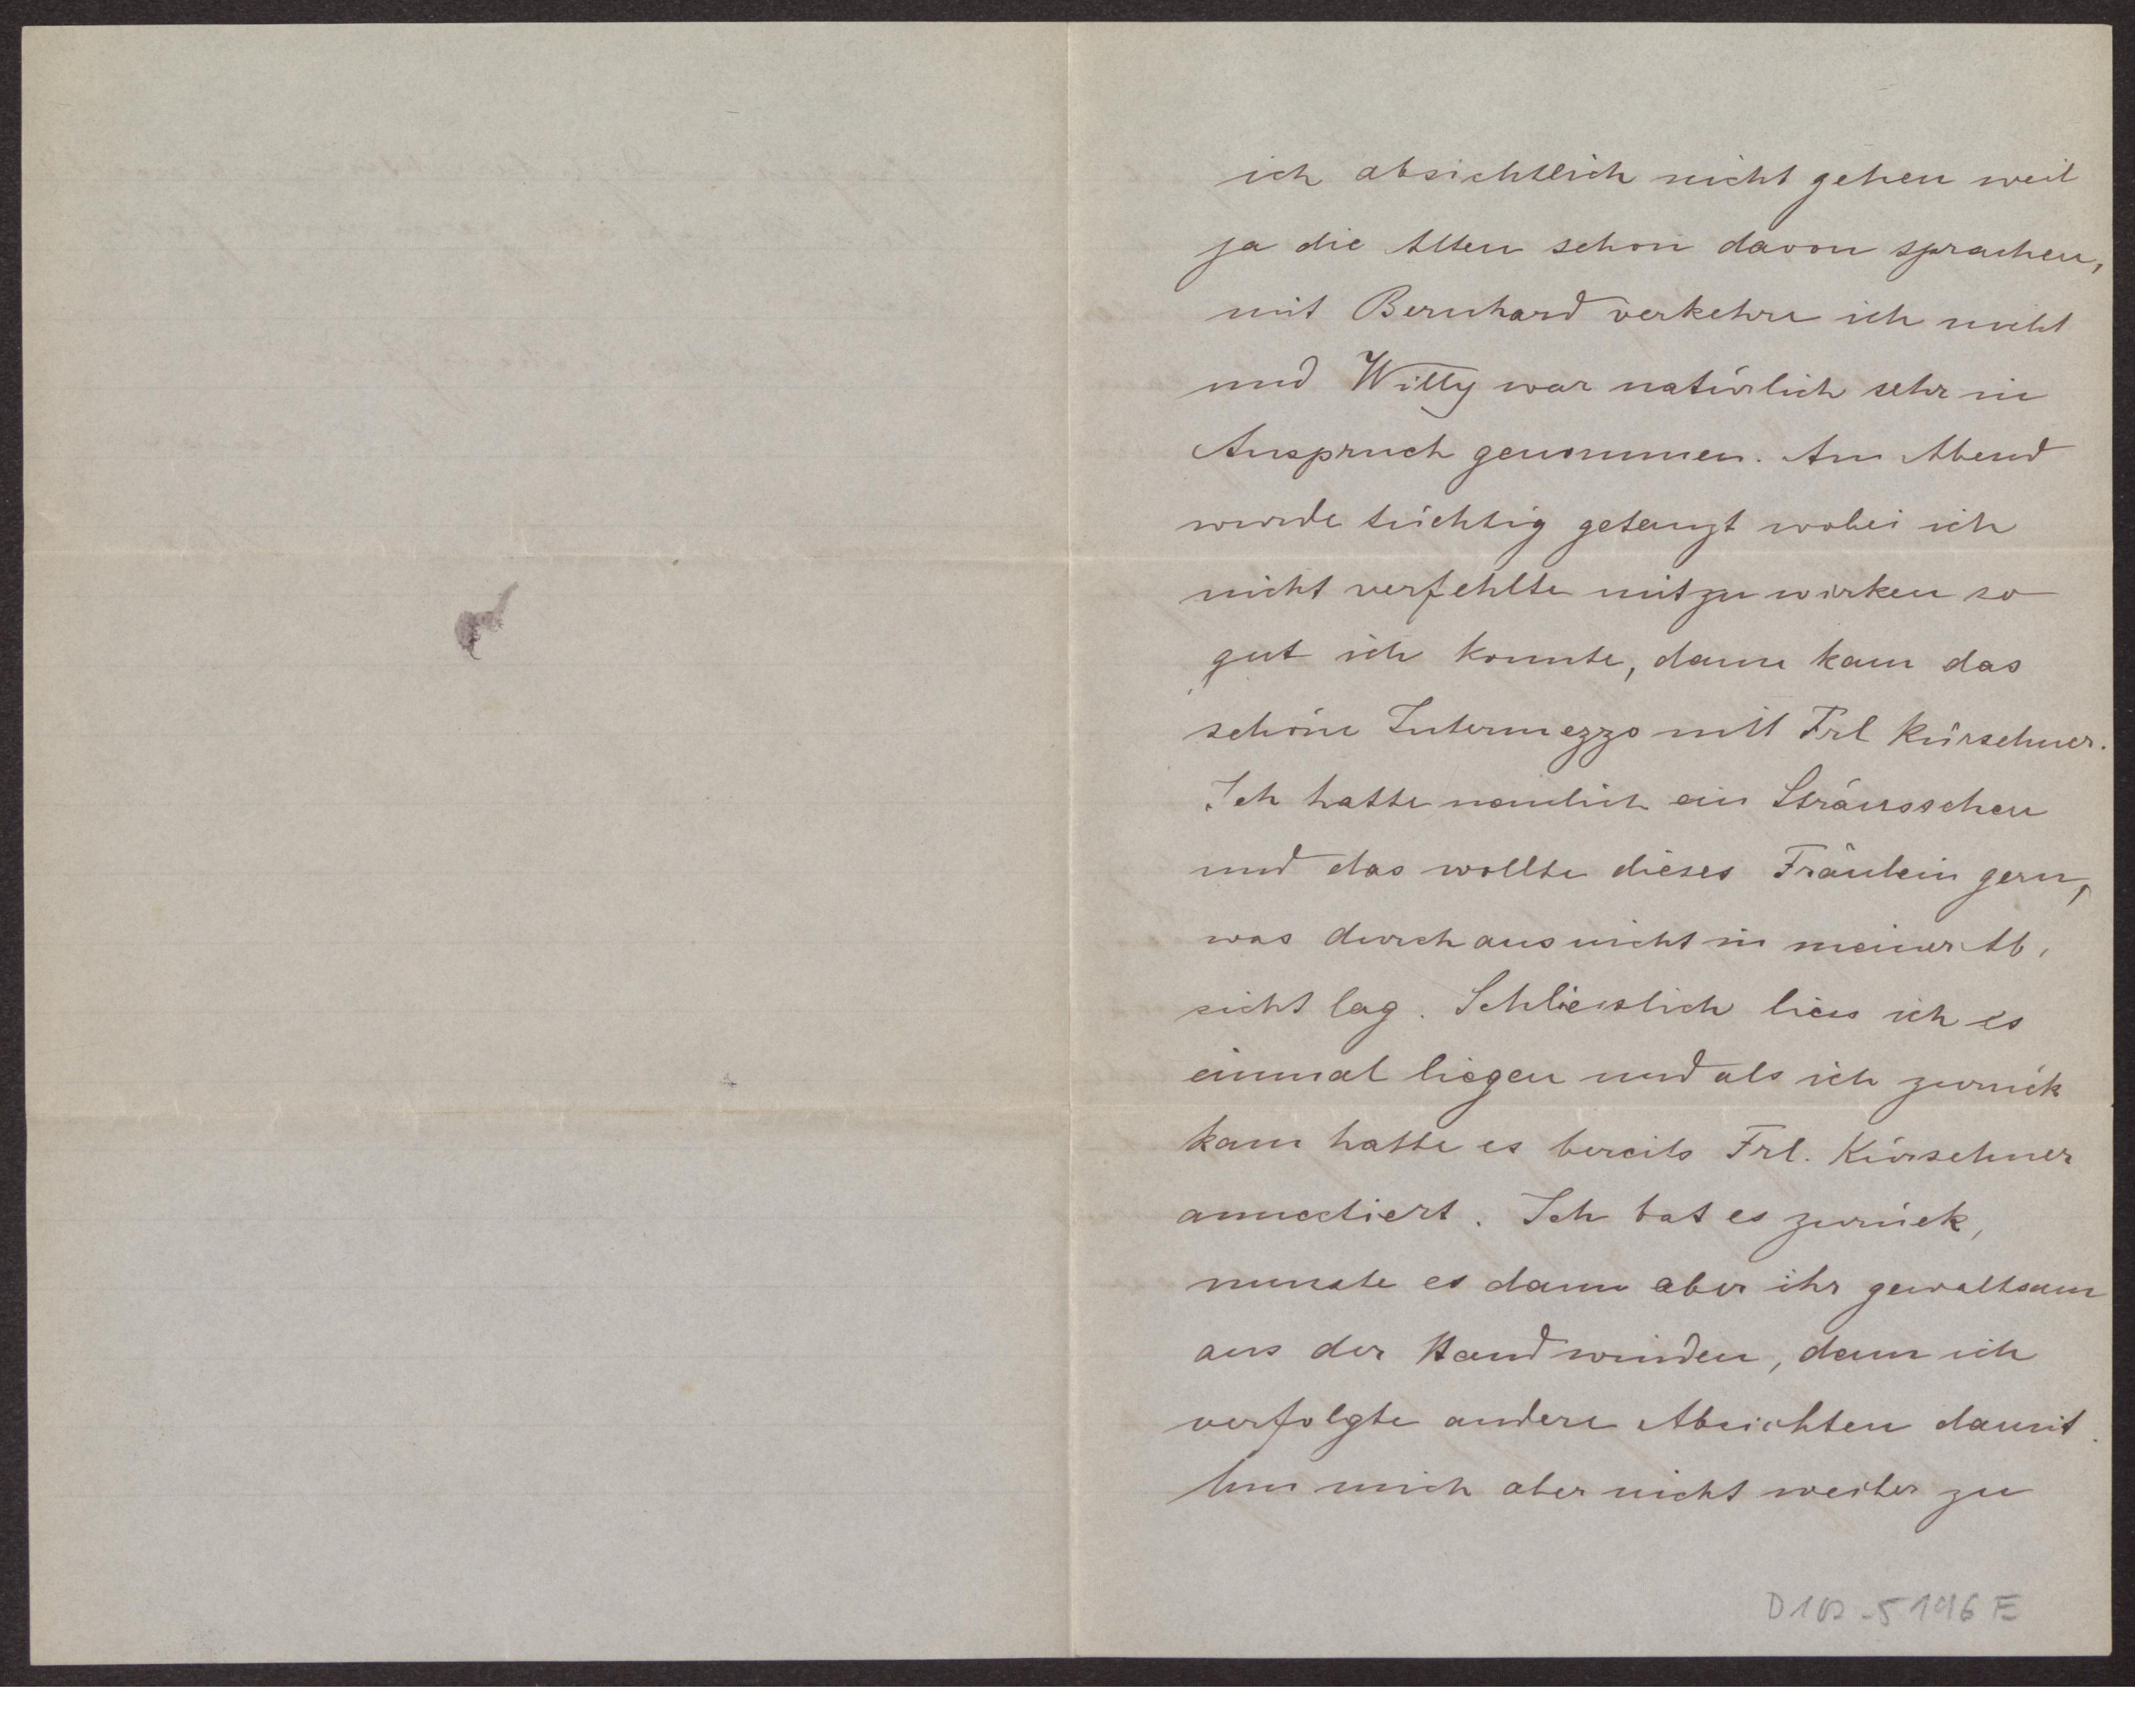 ich absichtlich nicht gehen weil
ja die Alten schon davon sprachen,
mit Bernhard verkehre ich nicht
und Willy war natürlich sehr in
Anspruch genommen. Am Abend
wurde tüchtig getanzt wobei ich
nicht verfehlte mitzuwirken so
gut ich konnte, dann kam das
schöne Intermezzo mit Frl Kürschner.
Ich hatte nämlich ein Sträusschen
und das wollte dieses Fräulein gern,
was durchaus nicht in meiner Ab,
sicht lag. Schliesslich lies ich es
einmal liegen und als ich zurück
kam hatte es bereits Frl. Kürschner
annectiert. Ich bat es zurück,
musste es dann aber ihr gewaltsam
aus der Hand winden, denn ich
verfolgte andere Absichten damit.
Um mich aber nicht weiter zu